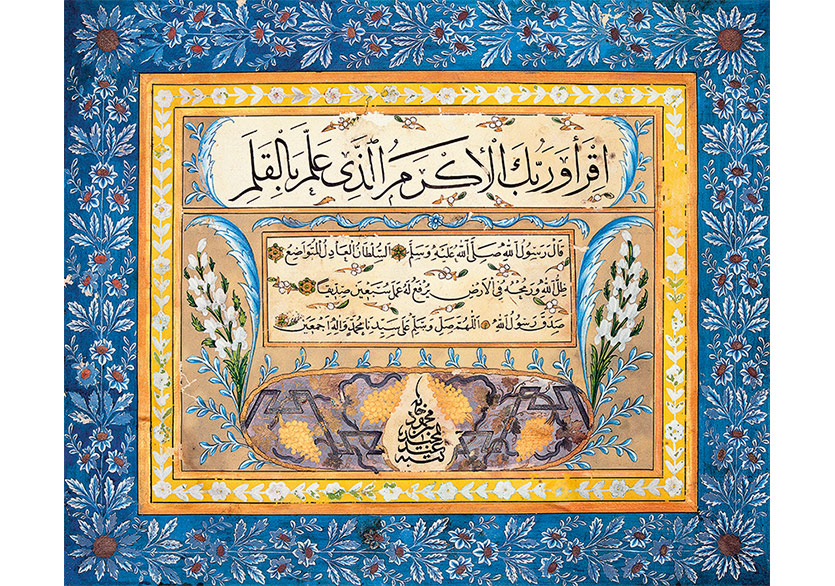 اقرأ وربك الأكرم الذى علم بالقلم
قال رسول الله صلى الله عليه وسلم السلطان العادل المتواضع
ظل الله ورمحه فى الأرض يرفع له عمل سبعين صديقا
صدق رسول الله اللهم صل وسلم على سيدنا محمد واله اجمعين
كتبه محمود بن عبد الحميد خان